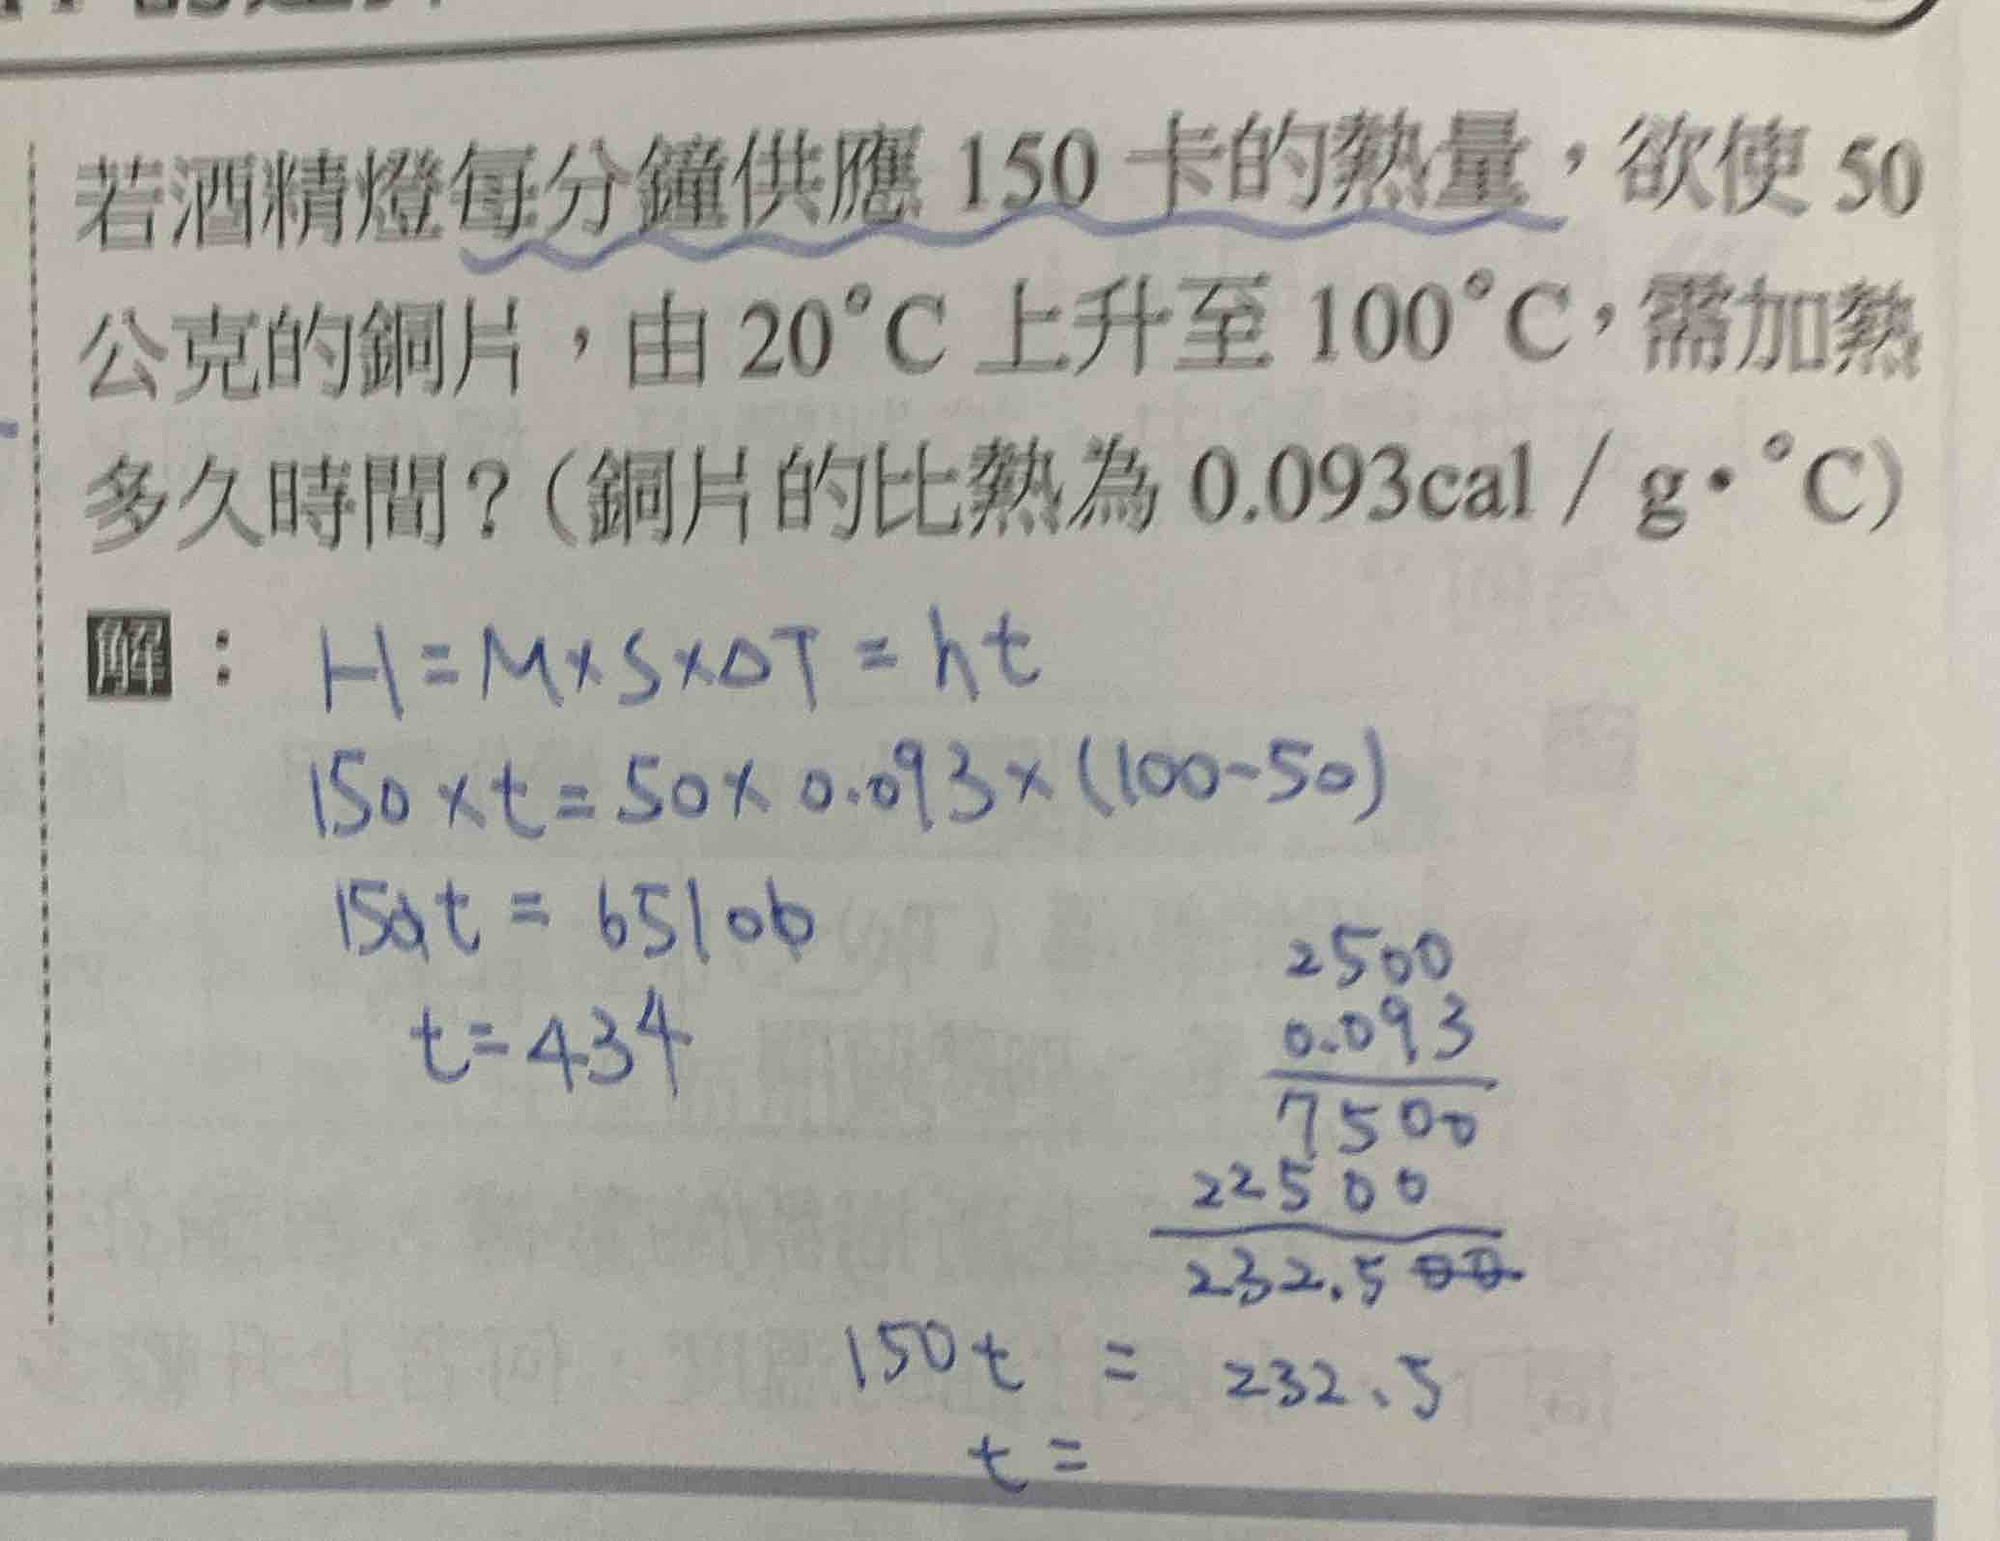 若酒精燈每分鐘供應 150 卡的熱量，欲使 50
公克的銅片，由 20°C 上升至 100°C，需加熱
多久時間？(銅片的比熱為 0.093cal / g·°C)
解： H=M×S×ΔT=ht
150×t=50×0.093×(100-50)
150t = 65100
t=434
2500
0.093
7500
22500
232.500
150t = 232.5
t=